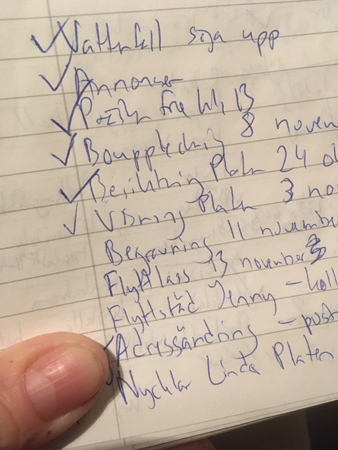 Vattenfall säga upp
Annonser
fre kl. 13
Bouppteckning 8 novem
Besiktning Platen 24 ok
Visning Platen 3 no
Begravning 11 november
Flyttlass 13 november
Flyttstäd Jenny - koll
Adressändring - post
Nycklar Linda Platen